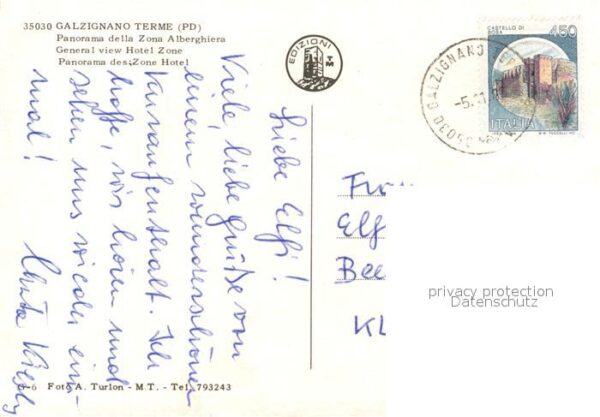 35030 GALZIGNANO TERME (PD)
Panorama della Zona Alberghiera
General view Hotel Zone
Panorama des Zone Hotel
EDIZIONI
TM
CASTELLO DI
ROSA
450
ITALIA
35030 GALZIGNANO
-5.
Liebe Elfi!
Viele, liebe Grüße von
einem wunderschönen
Kuraufenthalt. Ich
hoffe, wir hören und
sehen uns wieder ein-
mal!
Elf
Bee
KL
privacy protection
Datenschutz
G-6 Foto A. Turlon - M.T. - Tel. 793243